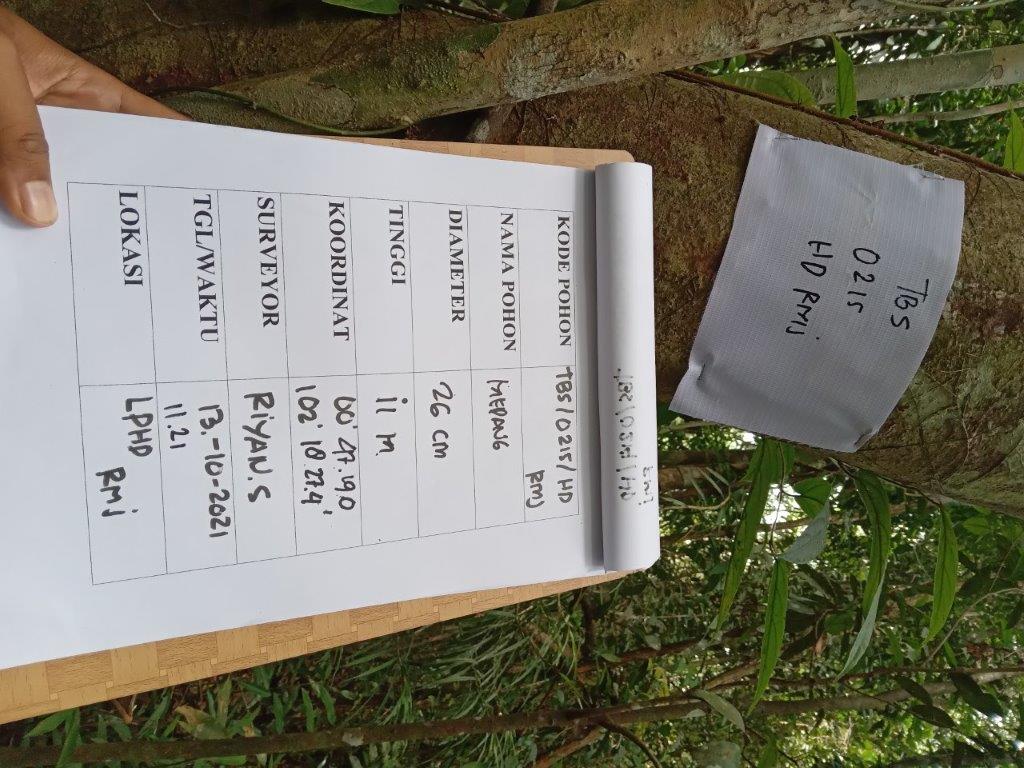 TBS
0215
HD RMj
KODE POHON TBS/0215/HD
RMJ
NAMA POHON MEDANG
DIAMETER 26 cm
TINGGI 11 M
KOORDINAT 00' 47.19.0
102' 18.27.4'
SURVEYOR RIYAN.S
TGL/WAKTU 13.-10-2021
11.21
LOKASI LPHD
RMj